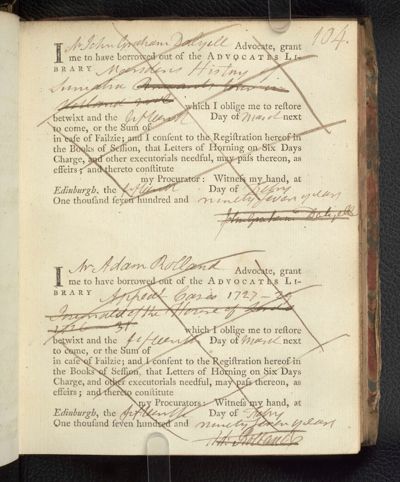 104.
I Mr John Graham Dalyell Advocate, grant
me to have borrowed out of the ADVOCATES LI-
BRARY Marsden's History
Sumatra
which I oblige me to reſtore
betwixt and the fifteenth Day of March next
to come, or the Sum of
in caſe of Failzie; and I conſent to the Regiſtration hereof in
the Books of Seſſion, that Letters of Horning on Six Days
Charge, and other executorials needful, may paſs thereon, as
effeirs; and thereto conſtitute
my Procurator: Witneſs my hand, at
Edinburgh, the fifteenth Day of Febry
One thouſand ſeven hundred and ninety seven years
John Graham Dalyell
I Mr Adam Rolland Advocate, grant
me to have borrowed out of the ADVOCATES LI-
BRARY Appeal Cases 1727-29
Journals of the House of Lords
1726 31 which I oblige me to reſtore
betwixt and the fifteenth Day of March next
to come, or the Sum of
in caſe of Failzie; and I conſent to the Regiſtration hereof in
the Books of Seſſion, that Letters of Horning on Six Days
Charge, and other executorials needful, may paſs thereon, as
effeirs; and thereto conſtitute
my Procurators: Witneſs my hand, at
Edinburgh, the fifteenth Day of Febry
One thouſand ſeven hundred and ninety seven years
Ad. Rolland